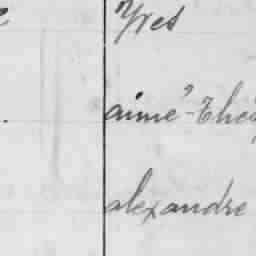 Yves
aimé-Thé
alexandre